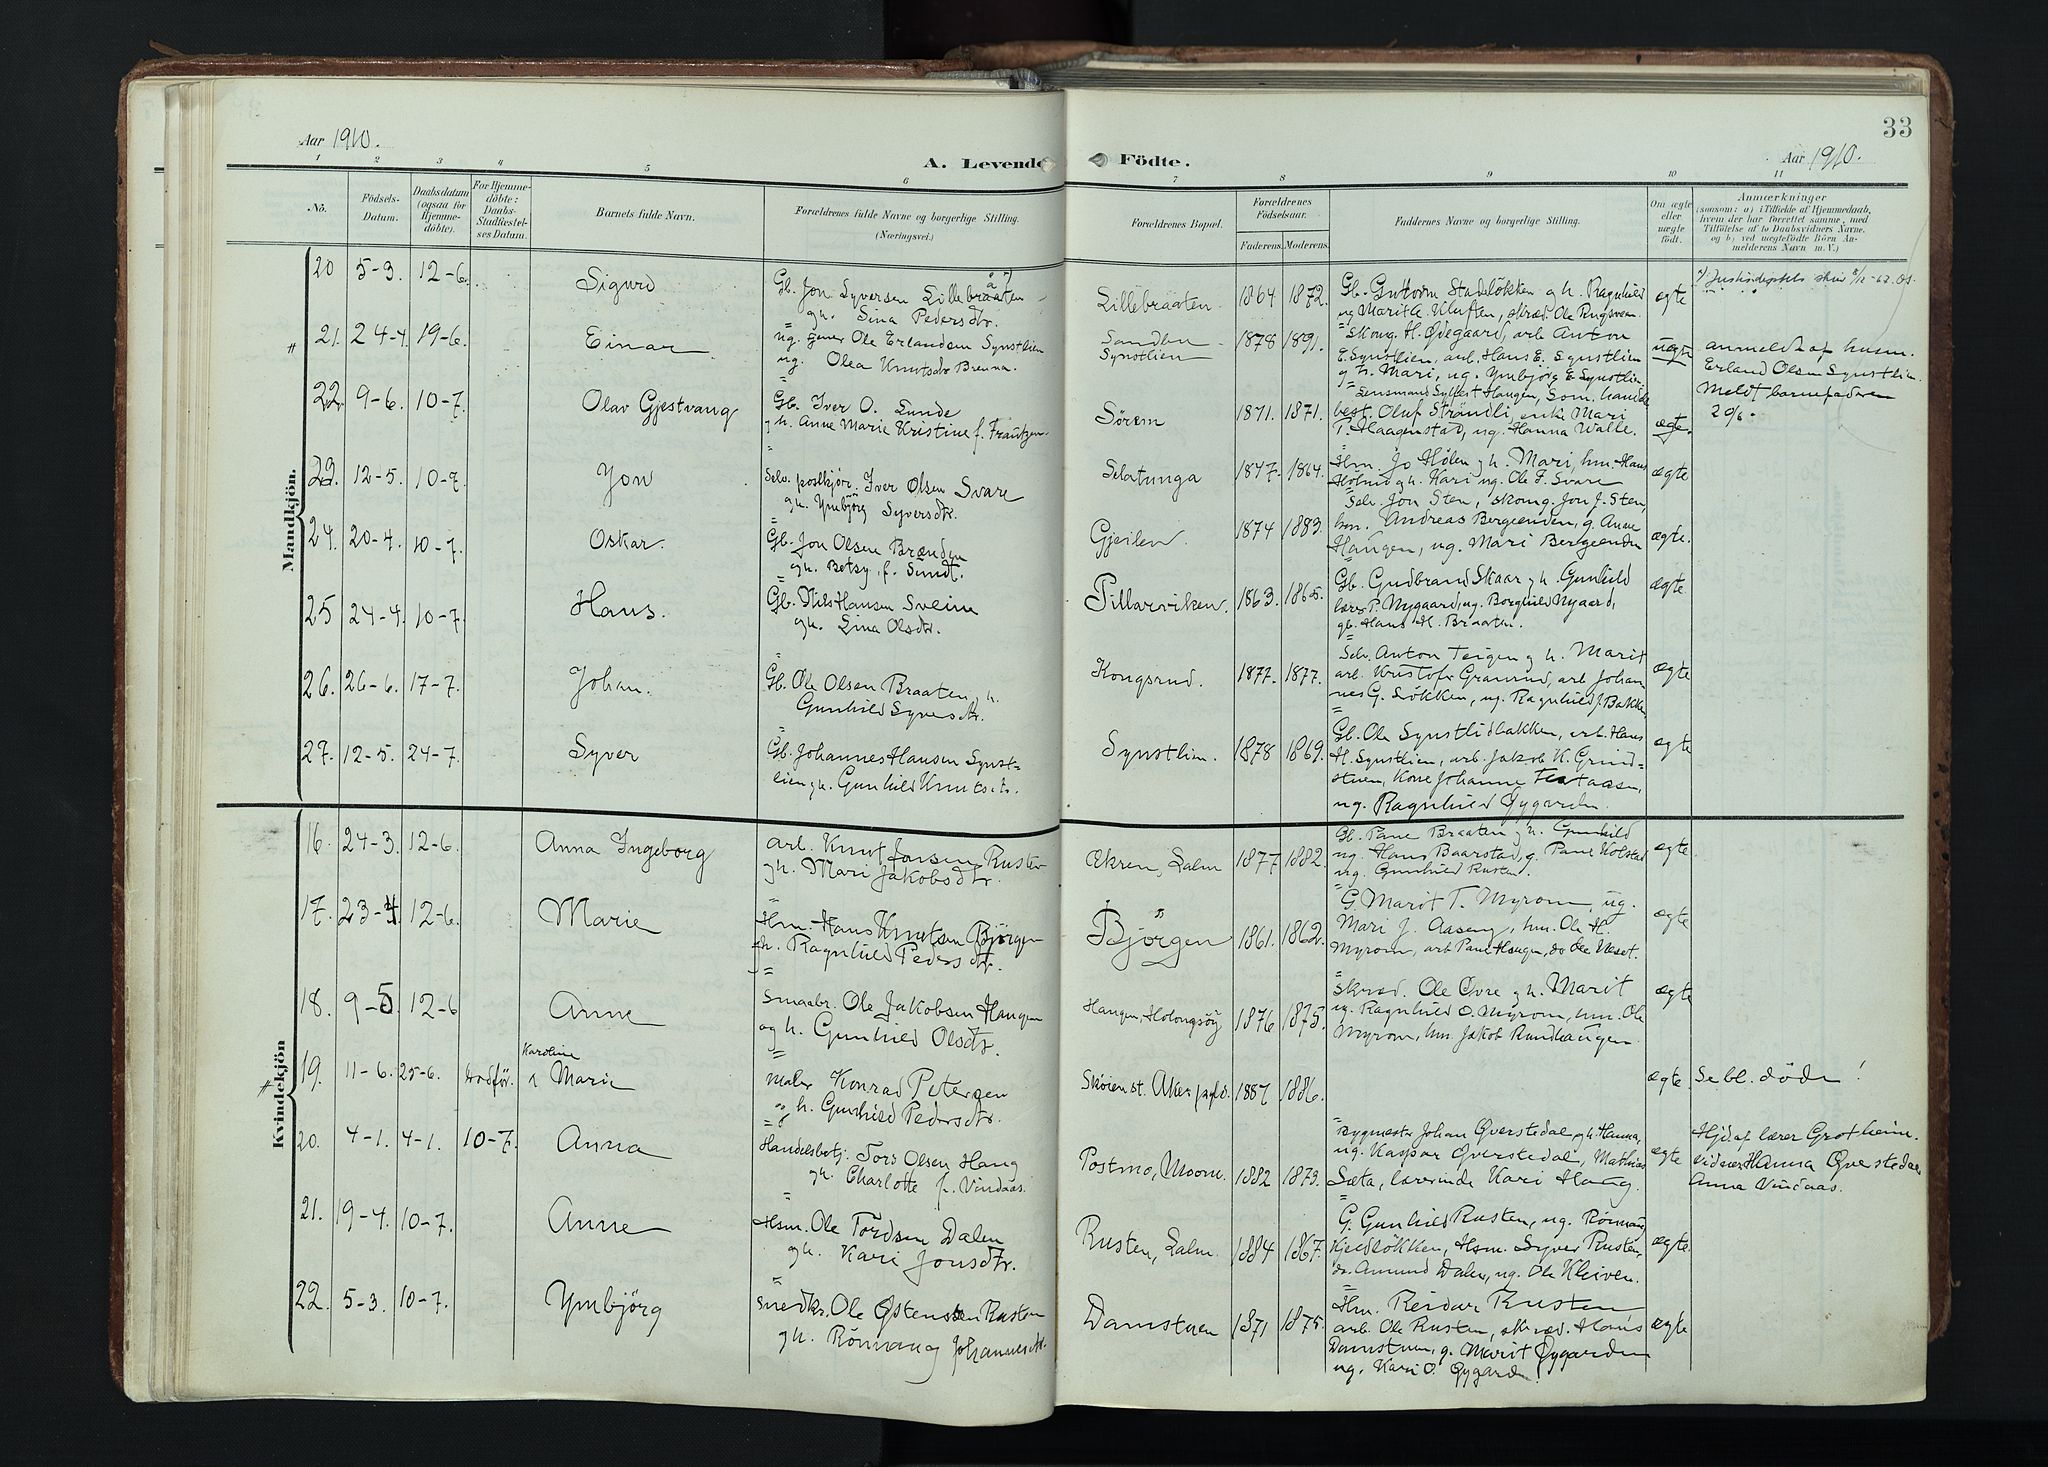 33
Aar 1910.
A. Levende Födte.
Aar 1910.
1 2 3 4 5 6 7 8 9 10 11
No.
Födsels-Datum.
Daabsdatum (ogsaa for Hjemmedöbte).
For Hjemmedöbte: Daabs-Stadfæstelses Datum.
Barnets fulde Navn.
Forældrenes fulde Navne og borgerlige Stilling.
(Næringsvei.)
Forældrenes Bopæl.
Forældrenes Födselsaar.
Faderens. Moderens.
Faddernes Navne og borgerlige Stilling.
Om ægte eller uægte födt.
Anmærkninger
(saasom: a) i Tilfælde af Hjemmedaab, hvem der har forrettet samme, med Tilföielse af to Daabsvidners Navne. og b) ved uægtefödte Börn Anmelderens Navn m. V.)
Mandkjön.
20 5-3. 12-6. Sigurd
Gb. Jon Syversen Lillebraaten
gh. Sina Pedersdtr.
Lillebraaten. 1864 1872.
Gb. Guttorm Stadeløkken gh. Ragnhild
ug Marit Uluften, skræd. Ole Rugsveen
ægte
21. 24-4. 19-6. Einar.
ug. gaver Ole Erlandsen Synstlien
ug. Olea Knutsdtr Brenna.
Sandbu
Synstlien
1878 1891.
Skomg. H. Ødegaard, arb. Anton
E. Synstlien, arb. Hans E. Synstlien
gh. Mari, ug. Ymbjørg E. Synstlien
uægte
anmeldt af husm.
Erland Olsen Synstlien.
Meldt barnefaderen
20/6.
22 9-6. 10-7. Olav Gjestvang
Gb. Iver O. Lunde
gh. Anne Marie Kristine f. Frantzen.
Sørem 1871. 1871.
Lensmand Sylfest Haugen, Som. handls
best. Oluf Strandli, enke Mari
T. Haagenstad, ug. Hanna Walle.
ægte.
23. 12-5. 10-7. Jon
Selv. postkjører Iver Olsen Svare
gh. Ymbjørg Syversdtr.
Selatunga 1847. 1864.
Hm. Jo Hølen gh. Mari, hm. Hans
Hølmo gh. Kari ug. Ole F. Svare
ægte
24. 20-4. 10-7. Oskar.
Gb. Jon Olsen Brænden
gh. Betsy f. Sundt.
Gjeilen. 1874 1883.
Selv. Jon Sten, skomg. Jon J. Sten,
hm. Andreas Bergeenden, g. Anne
Haugen, ug. Mari Bergeenden
ægte.
25 24-4. 10-7. Hans.
Gb. Nils Hansen Sveine
gh. Lina Olsdtr.
Pillarviken. 1863. 1865.
Gb. Gudbrand Skaar gh. Gunhild
lærer P. Nygaard, ug. Borghild Nygaard,
gb. Hans H. Braaten.
ægte.
26. 26-6. 17-7. Johan.
Gb. Ole Olsen Braaten gh.
Gunhild Syversdtr.
Kongsrud. 1877. 1877.
Selv. Anton Teigen gh. Marit
arb. Kristofer Granrud, arb Johan-
nes G. Løkken, ug. Ragnhild J. Bakken
ægte
27. 12-5. 24-7. Syver
Gb. Johannes Hansen Synst-
lien gh. Gunhild Knutsdtr.
Synstlien. 1878 1869.
Gb. Ole Synstlidbakken, arb. Hans
H. Synstlien, arb. Jakob K. Grind-
stuen, Kone Johanne
ug. Ragnhild Øygarden.
ægte
Kvindekjön
16. 24-3. 12-6. Anna Ingeborg
arb. Knut Jonsen Rusten
gh. Mari Jakobsdtr.
Ekren, Selm 1877 1882.
Gb. Paul Braaten gh. Gunhild
ug. Hans Baarstad, g. Paul Kolstad
ug. Gunhild Rusten.
ægte
17. 23-4. 12-6. Marie
Hm. Hans Knutsen Bjørgen
gh. Ragnhild Pedersdtr.
Bjørgen 1861. 1862.
G. Marit T. Myrom, ug.
Mari J. Aaseng, hm. Ole H.
Myrom, arb Paul Haugen, do Ole Veset.
ægte
18. 9-5. 12-6 Anne
Smaabr. Ole Jakobsen Haugen
og h. Gunhild Olsdtr.
Haugen, Holongsøy 1876 1875.
Skræd. Ole Øvre gh. Marit
ug. Ragnhild O. Myrom, hm. Ole
Myrom, hm. Jakob Rundhaugen.
ægte
19. 11-6. 25-6. Karoline
Marie
Maler Konrad Petersen
gh. Gunhild Pedersdtr.
Skøien st. Aker 1887 1886.
ægte
Se bl. døde!
20. 4-1. 4-1. 10-7. Anna
Handelsbetj. Tors Olsen Haug
gh. Charlotte f. Vindaas.
Postmo, Moem. 1882 1873.
Bygmester Johan Qverstedal, gh. Hanna,
ug. Kaspar Qverstedal, Mathias
Sæta, lærerinde Kari Haug.
ægte
Hjd af lærer Grotheim.
vidner Hanna Qverstedal
Anna Vindaas.
21. 19-4. 10-7. Anne
Hsm. Ole Tordsen Dalen
gh. Kari Jonsdtr.
Rusten, Selm. 1884 1867.
G. Gunhild Rusten, ug. Rønnaug
Kjeldløkken, Hsm. Syver Rusten,
do. Amund Dalen, ug. Ole Kleiven.
ægte.
22. 5-3. 10-7. Ymbjørg
Snedkr. Ole Østensen Rusten
gh. Rønnaug Johannesdtr.
Damstuen 1871 1875.
Hm. Reidar Rusten
arb. Ole Rusten, skræd. Hans
Damstuen, g. Marit Øygarden
ug. Kari O. Øygarden.
ægte